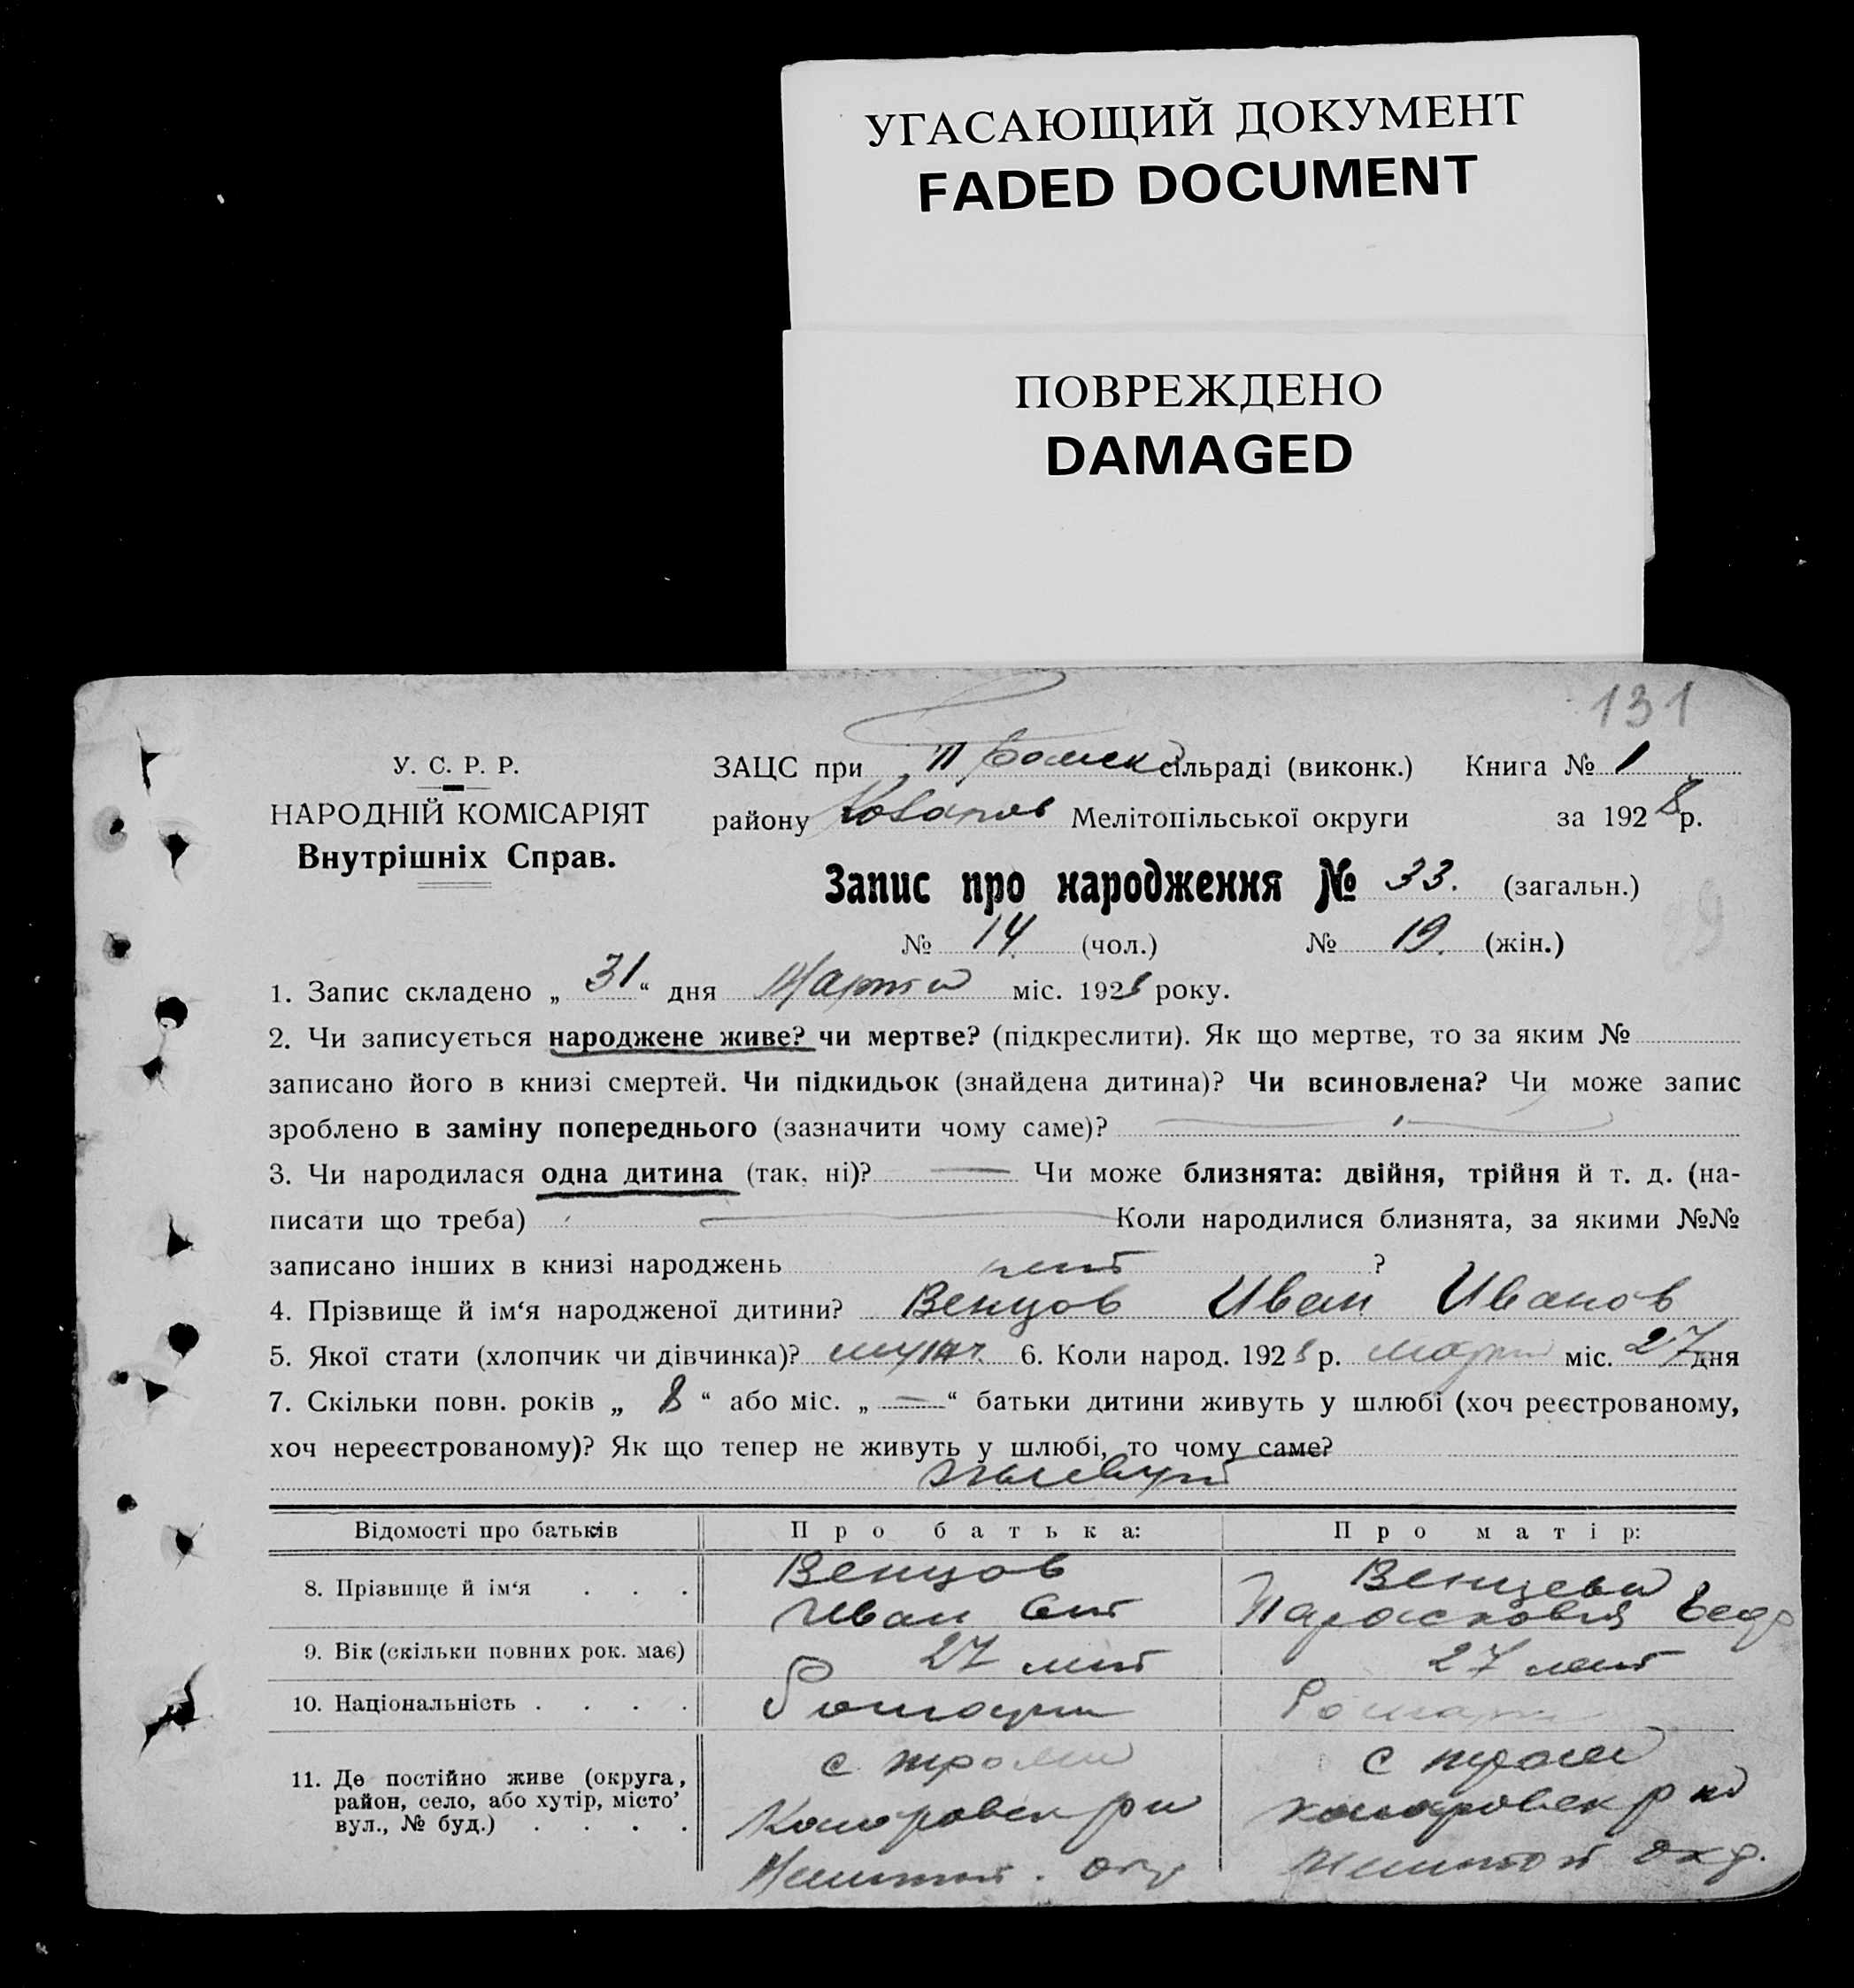 УГАСАЮЩИЙ ДОКУМЕНТ
FADED DOCUMENT
ПОВРЕЖДЕНО
DAMAGED
131
У. С. Р. Р.
НАРОДНІЙ КОМІСАРІЯТ
Внутрішніх Справ.
ЗАЦС при сільраді (виконк.) Книга № 1
району Мелітопільської округи за 1928 р.
Запис про народження № 33. (загальн.)
№ 14 (чол.) № 19. (жін.)
1. Запис складено „ 31 “ дня Марта міс. 1928 року.
2. Чи записується народжене живе? чи мертве? (підкреслити). Як що мертве, то за яким №
записано його в книзі смертей. Чи підкидьок (знайдена дитина)? Чи всиновлена? Чи може запис
зроблено в заміну попереднього (зазначити чому саме)?
3. Чи народилася одна дитина (так, ні)? — Чи може близнята: двійня, трійня й т. д. (на-
писати що треба) — Коли народилися близнята, за якими №№
записано інших в книзі народжень нет ?
4. Прізвище й ім‘я народженої дитини? Венцов Иван Иванов
5. Якої стати (хлопчик чи дівчинка)? 6. Коли народ. 1928 р. марта міс. 27 дня
7. Скільки повн. років „ 8 “ або міс. „ — “ батьки дитини живуть у шлюбі (хоч реєстрованому,
хоч нереєстрованому)? Як що тепер не живуть у шлюбі, то чому саме?
живут
Відомості про батьків Про батька: Про матір:
8. Прізвище й ім‘я . . . Венцов Венцева
Иван Парасковія
9. Вік (скільки повних рок. має) 27 лет 27 лет
10. Національність . . . .
11. Де постійно живе (округа,
район, село, або хутір, місто’
вул., № буд.) . . . .